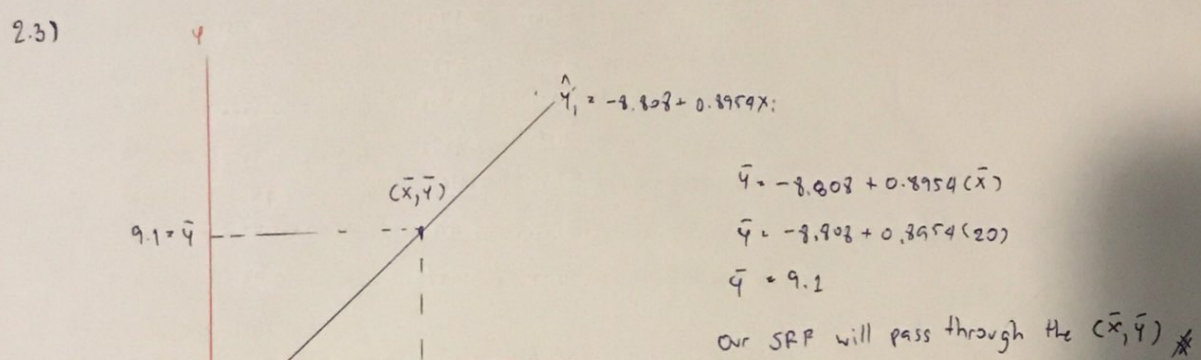 2.3)
Y
Ŷᵢ = -8.808 + 0.8954Xᵢ
(X̄,Ȳ)
9.1 = Ȳ
Ȳ = -8.808 + 0.8954(X̄)
Ȳ = -8.808 + 0.8954(20)
Ȳ = 9.1
Our SRF will pass through the (X̄,Ȳ)